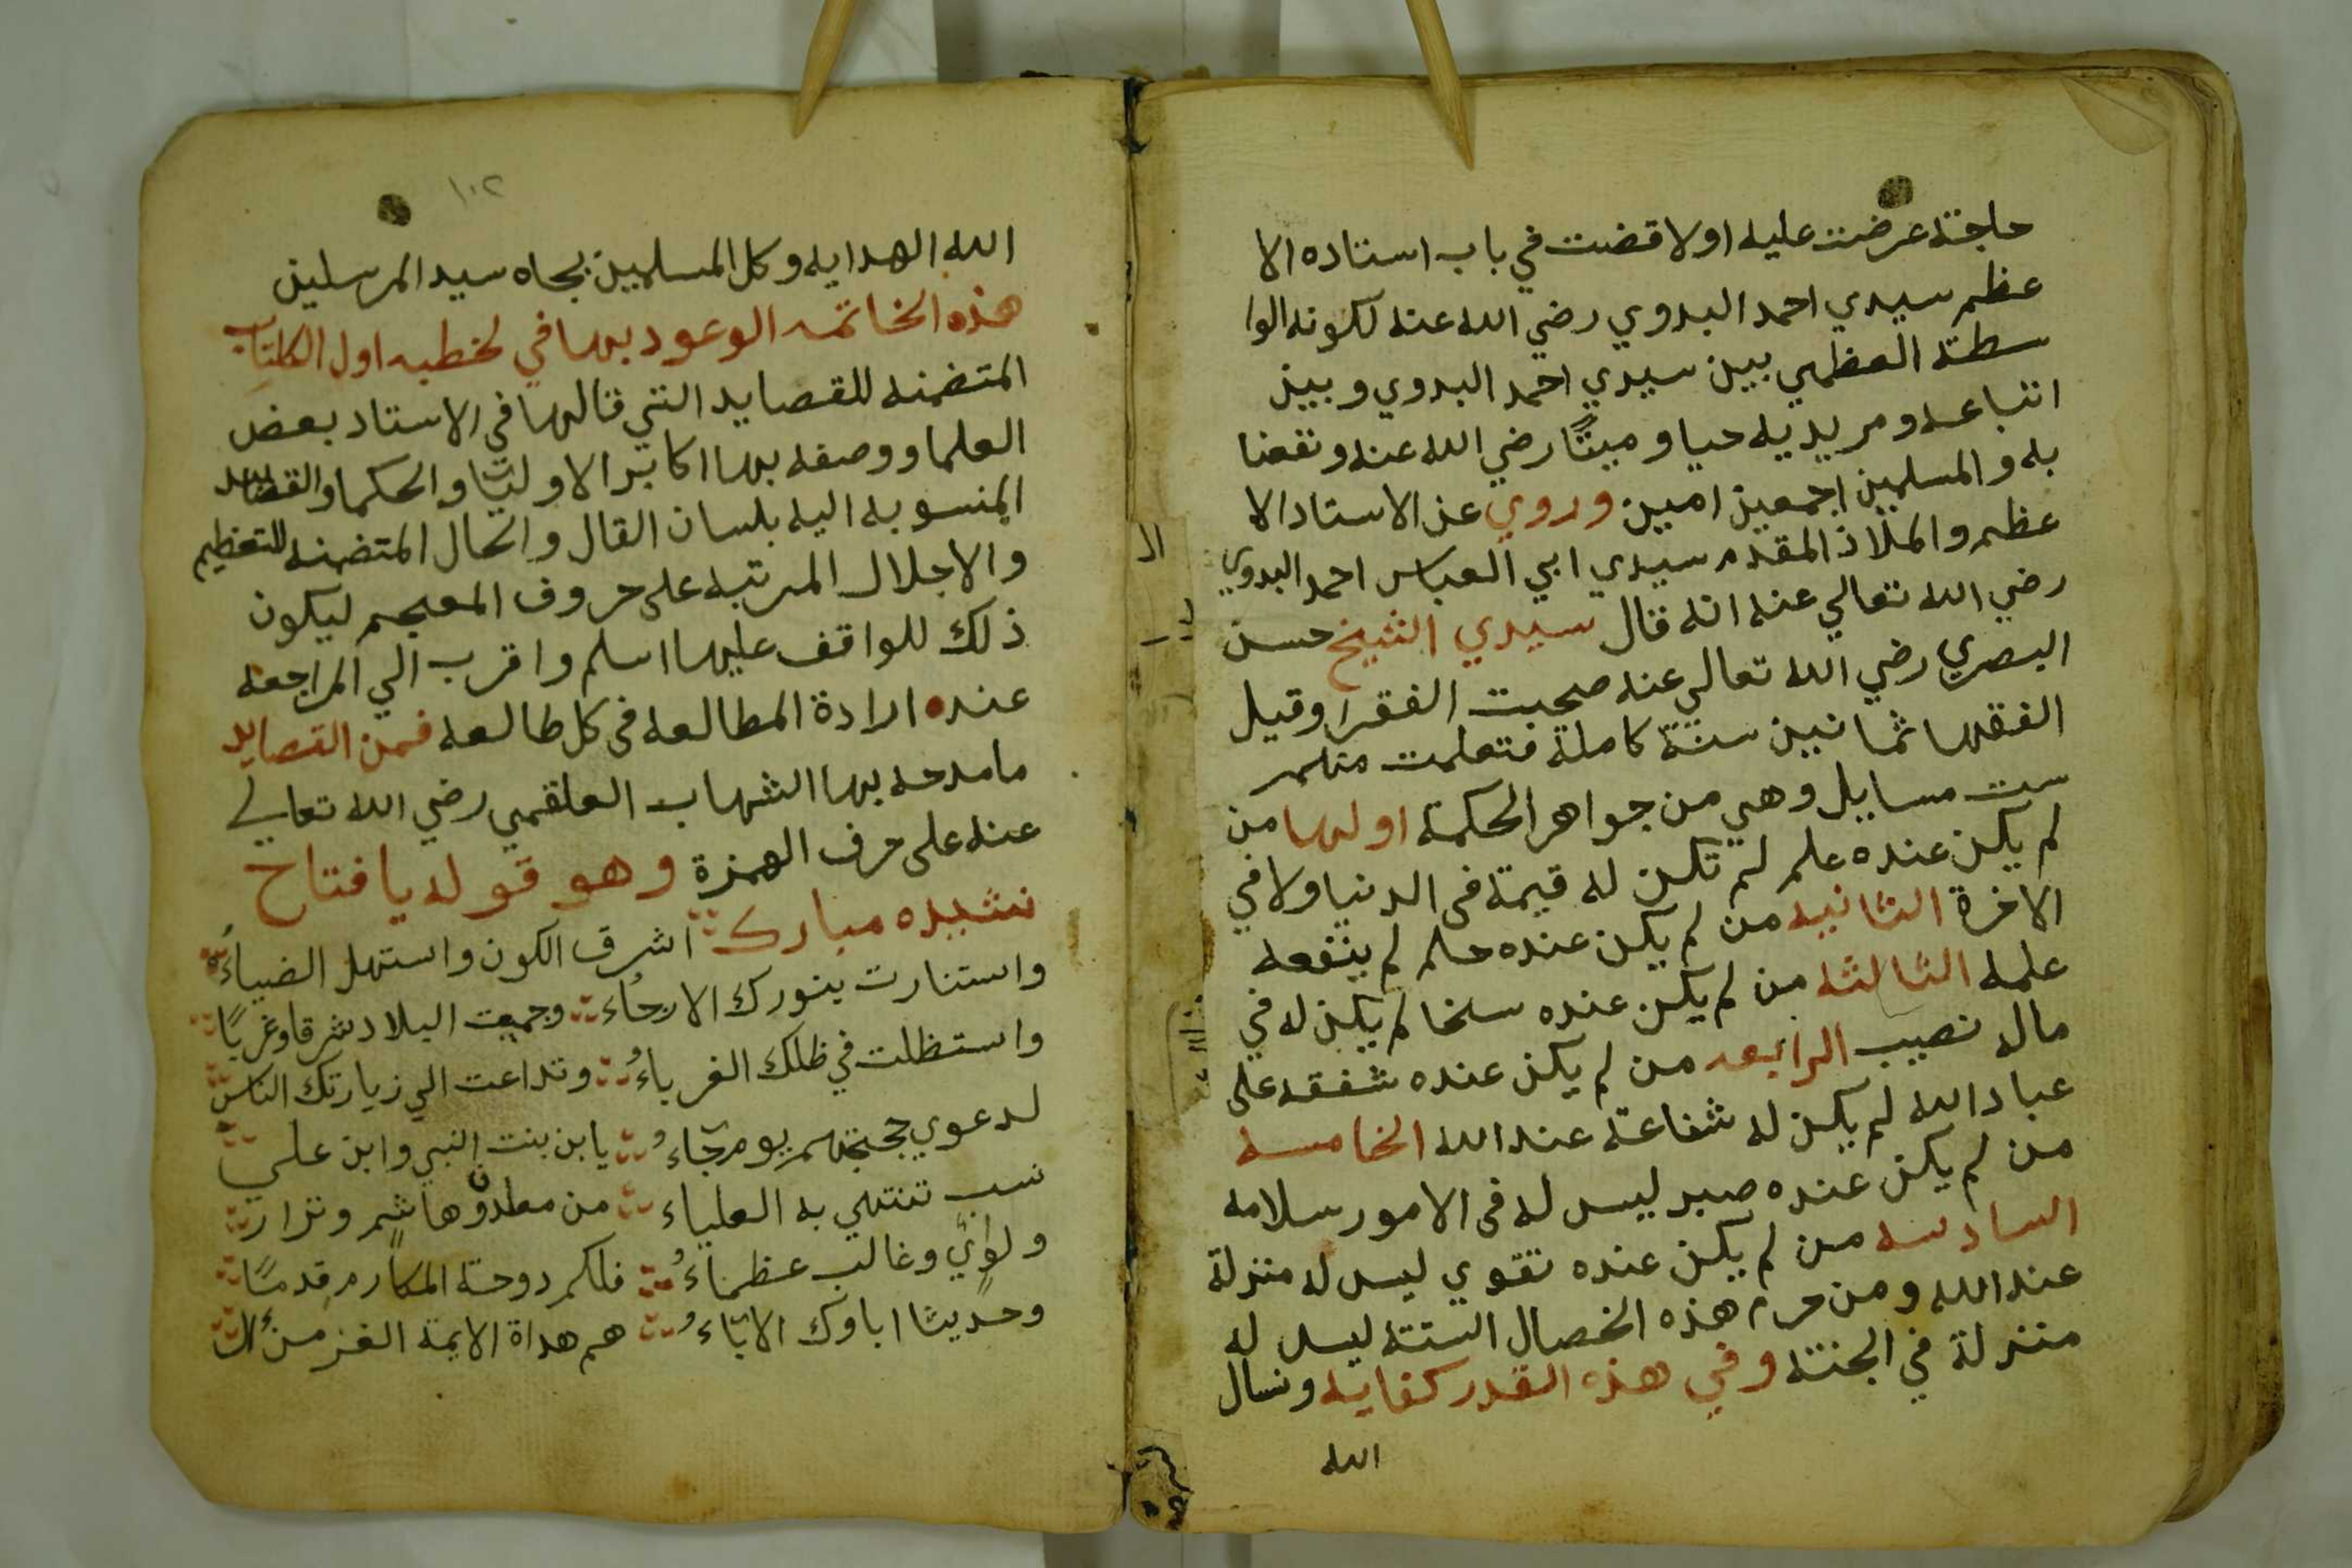 حاجته عرضت عليه اولا قضت في باب استاده الا
عظم سيدي احمد البدوي رضي الله عنه لكونه الوا
سطة العظمي بين سيدي احمد البدوي وبين
اتباعه ومريديه حيا وميتًا رضي الله عنه ونفعنا
به والمسلمين اجمعين امين وروي عن الاستاد الا
عظم والملاذ المقدم سيدي ابي العباس احمد البدوي
رضي الله تعالي عنه انه قال سيدي الشيخ حسن
البصري رضي الله تعالي عنه صحبت الفقرا وقيل
الفقها ثمانين سنة كاملة فتعلمت منهم
ست مسايل وهي من جواهر الحكمة اولها من
لم يكن عنده علم لم تكن له قيمة في الدنيا ولا في
الاخرة الثانيه من لم يكن عنده حلم لم ينفعه
علمه الثالثه من لم يكن عنده سخا لم يكن له في
ماله نصيب الرابعه من لم يكن عنده شفقه على
عباد الله لم يكن له شفاعة عند الله الخامسه
من لم يكن عنده صبر ليس له في الامور سلامه
السادسه من لم يكن عنده تقوي ليس له منزلة
عند الله ومن حرم هذه الخصال الستة ليس له
منزلة في الجنة وفي هذه القدر كفايه ونسال
الله
١٠٢
الله الهدايه وكل المسلمين بجاه سيد المرسلين
هذه الخاتمه الوعود بها في لخطبه اول الكتاب
المتضمنه للقصايد التي قالها في الاستاد بعض
العلما ووصفه بها اكابر الاوليا والحكما والقصايد
المنسوبه اليه بلسان القال والحال المتضمنه للتعظيم
والاجلال المرتبه على حروف المعجم ليكون
ذلك للواقف عليها اسلم واقرب الي المراجعه
عنده ارادة المطالعه في كل طالعه فمن القصايد
ما مدحه بها الشهاب العلقمي رضي الله تعالي
عنه على حرف الهمزة وهو قوله يا فتاح
نشيده مبارك اشرق الكون واستهل الضياءُ
واستنارت بنورك الارجاء وجميع البلاد شرقا وغربًا
واستظلت في ظلك الغرباءُ وتداعت الي زيارتك الناس
لدعوي حجتهم يوم جاءُ يا ابن بنت النبي وابن علي
نسب تنتهي به العلياء من معد وهاشم ونزار
ولؤي وغالب عظماءُ فلكم دوحة المكارم قدمًا
وحديثا اباوك الاباءُ هم هداة الايمة الغر من ال